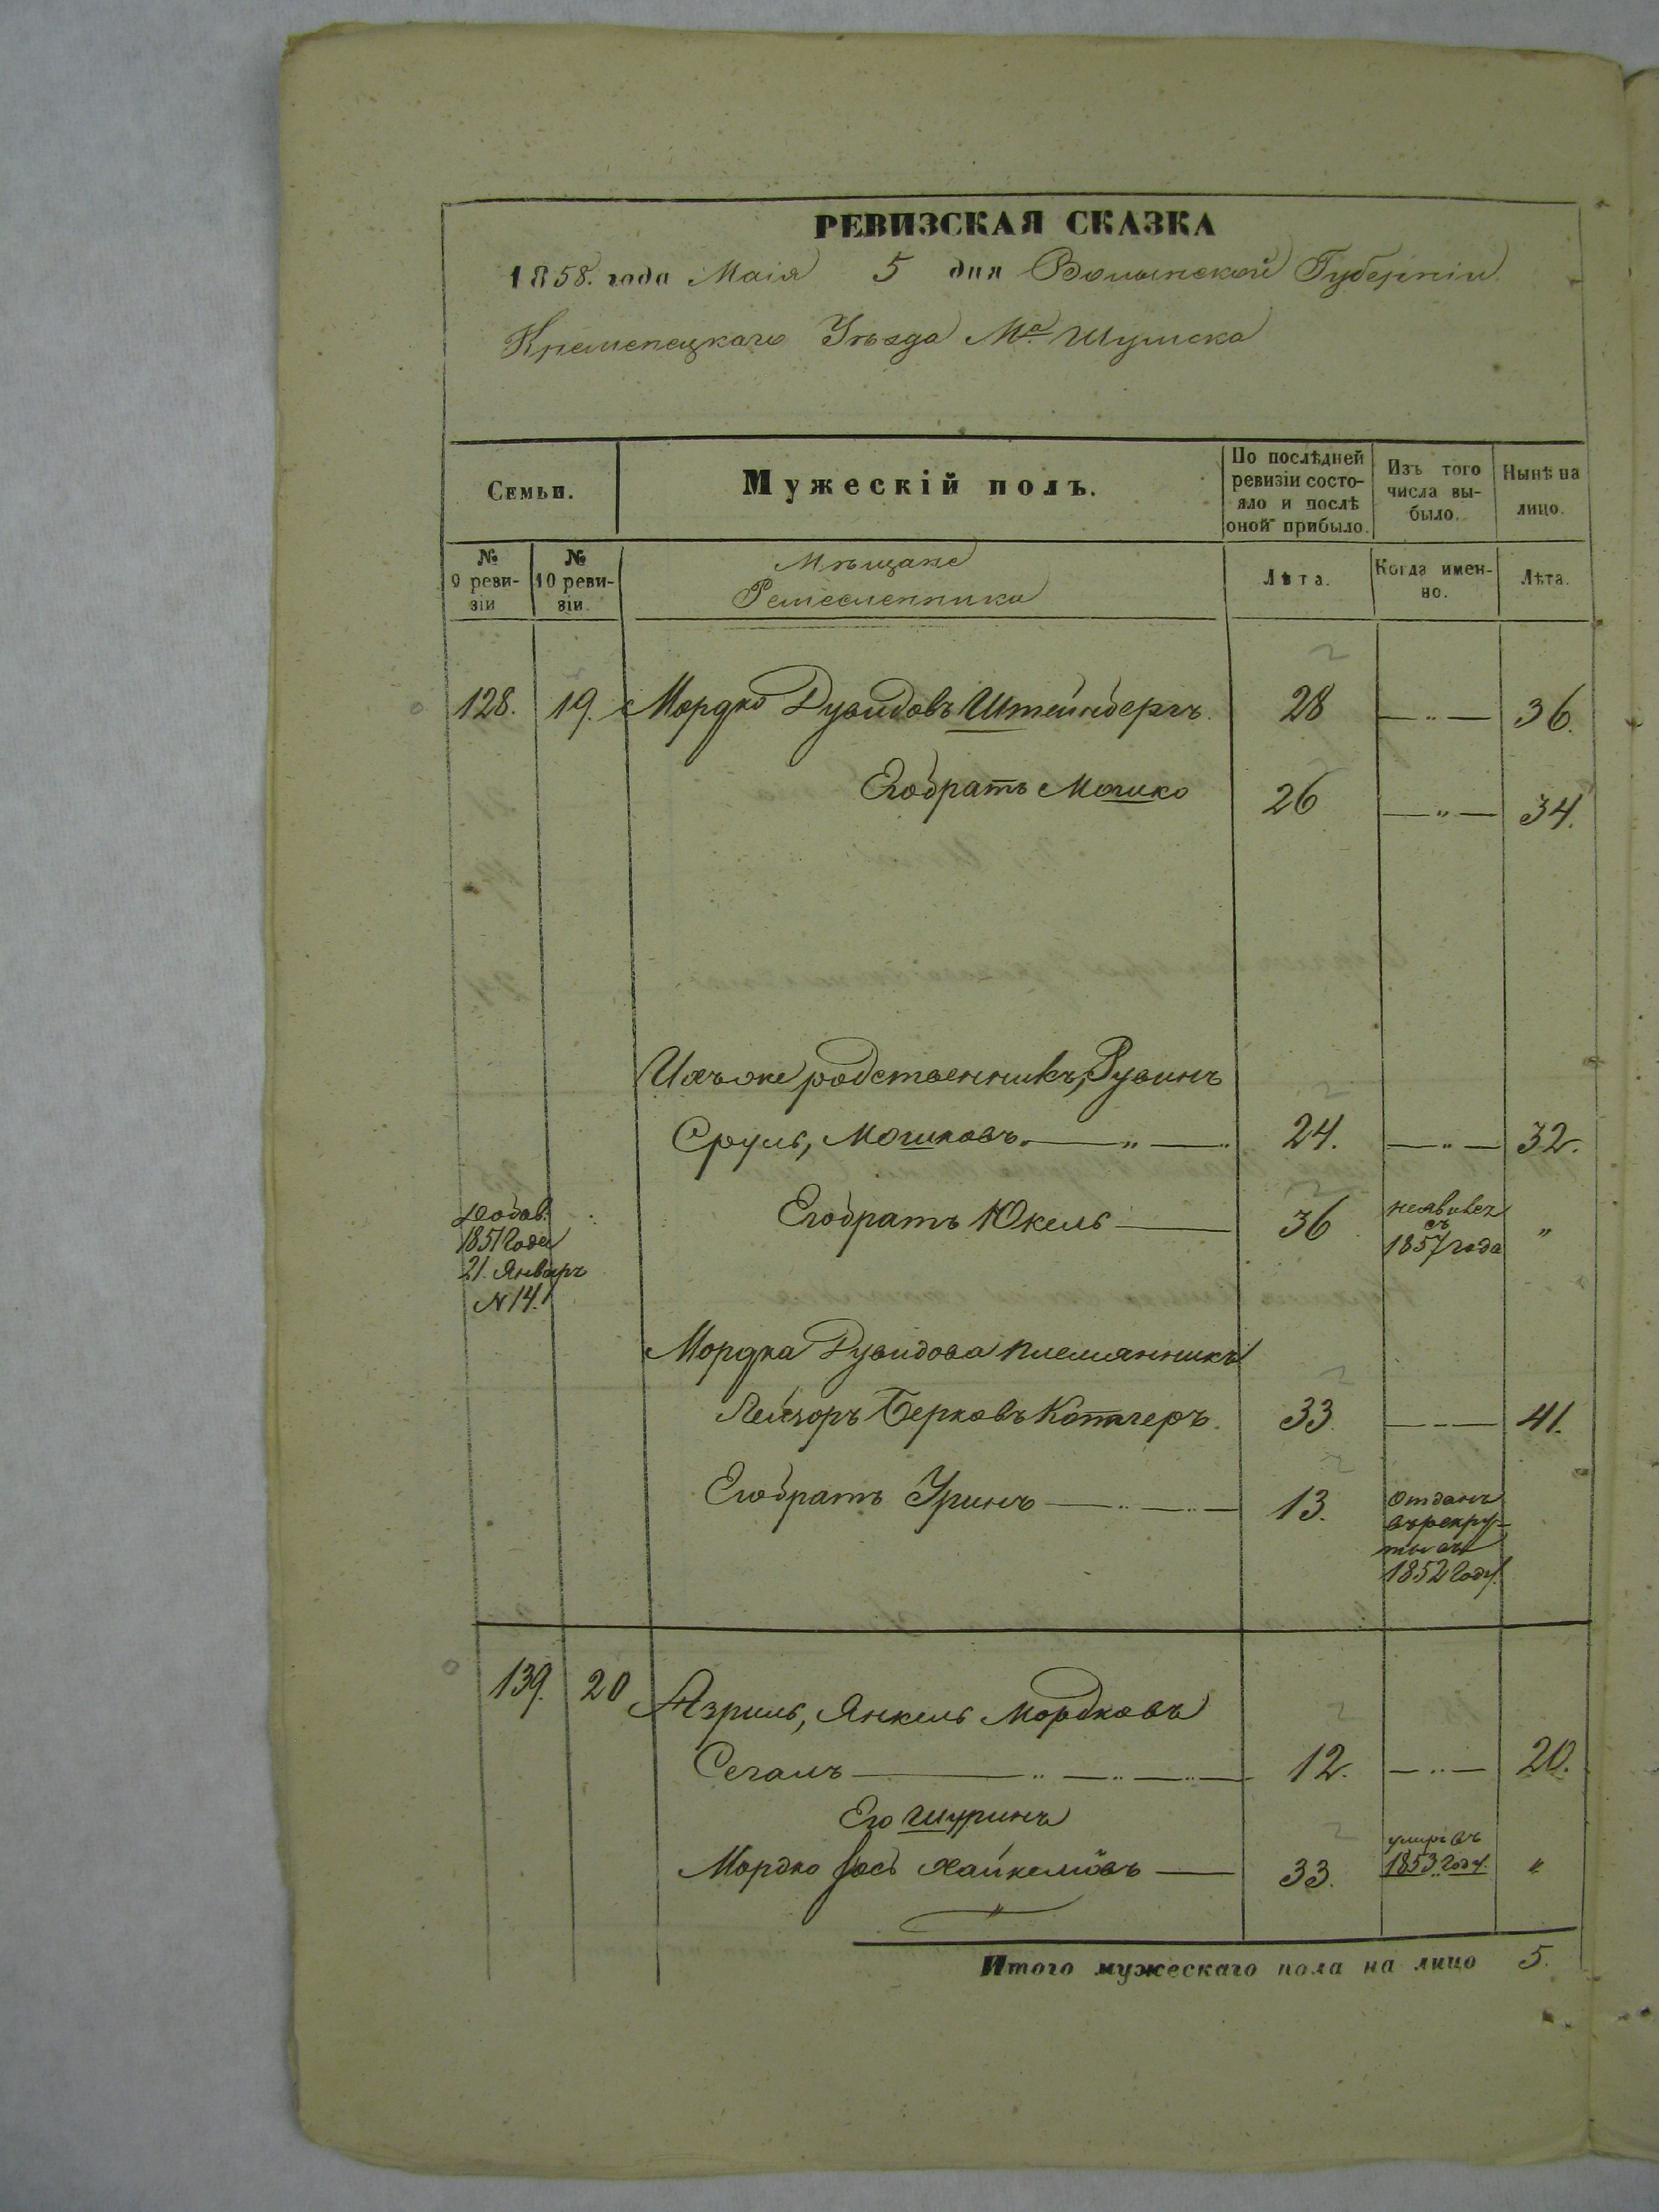 РЕВИЗСКАЯ СКАЗКА
1858. года Маія 5 дня Волынской Губерніи
Кременецкаго Уѣзда Мª Шумска
Семьи.
Мужескій полъ.
По послѣдней ревизіи состояло и послѣ оной прибыло.
Изъ того числа выбыло.
Нынѣ на лицо.
№ 9 ревизіи
№ 10 ревизіи.
Мѣщане
Ремесленники
Лѣта.
Когда именно.
Лѣта.
128. 19. Мордко Дувидовъ Штейнбергъ. 28 —„— 36.
Егобратъ Мошко 26 —„— 34.
Ихъ же родственникъ, Рувинъ
Сруль, Мошковъ. —„— 24. —„— 32.
Добав.
1851 Года
21. Январъ
N 14.
Егобратъ Юкель — 36 неявивсл
съ
1857 года „
Мордка Дувидова племянникъ
Лейзоръ Берковъ Котлеръ. 33. — 41.
Егобратъ Уринъ — 13. Отданъ
въ рекру-
ты въ
1852 Году.
139. 20 Азриль, Янкель Мордковъ
Сегалъ — 12. —„— 20.
Его шуринъ
Мордко Іось Хайкелювъ — 33. умиръ въ
1853. Году. „
Итого мужескаго пола на лицо 5.